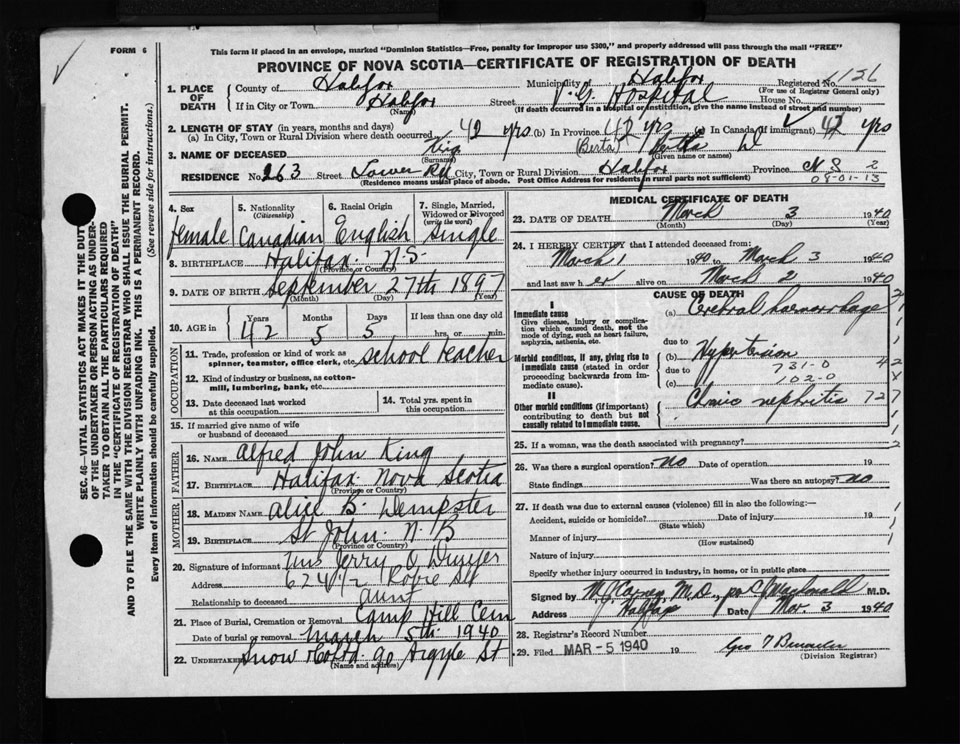 FORM 6
This form if placed in an envelope, marked "Dominion Statistics—Free, penalty for improper use $300," and properly addressed will pass through the mail "FREE"
PROVINCE OF NOVA SCOTIA—CERTIFICATE OF REGISTRATION OF DEATH
SEC. 46—VITAL STATISTICS ACT MAKES IT THE DUTY OF THE UNDERTAKER OR PERSON ACTING AS UNDERTAKER TO OBTAIN ALL THE PARTICULARS REQUIRED IN THE "CERTIFICATE OF REGISTRATION OF DEATH" AND TO FILE THE SAME WITH THE DIVISION REGISTRAR WHO SHALL ISSUE THE BURIAL PERMIT.
WRITE PLAINLY WITH UNFADING INK. THIS IS A PERMANENT RECORD.
Every item of Information should be carefully supplied. (See reverse side for instructions.)
1. PLACE OF DEATH County of Halifax Municipality of Halifax Registered No. 1126
(For use of Registrar General only)
If in City or Town Halifax Street V. G. Hospital House No.
(Name) (If death occurred in a hospital or institution, give the name instead of street and number)
2. LENGTH OF STAY (in years, months and days)
(a) In City, Town or Rural Division where death occurred 42 yrs (b) In Province 42 yrs (c) In Canada (if immigrant) 42 yrs
3. NAME OF DECEASED King (Berta) Bertha
(Surname) (Given name or names)
RESIDENCE No. 263 Street Tower Rd City, Town or Rural Division Halifax Province N S 2
(Residence means usual place of abode. Post Office Address for residents in rural parts not sufficient) 08-01-13
4. Sex female
5. Nationality (Citizenship) Canadian
6. Racial Origin English
7. Single, Married, Widowed or Divorced (write the word) single
8. BIRTHPLACE Halifax N.S.
(Province or Country)
9. DATE OF BIRTH September 27th 1897
(Month) (Day) (Year)
10. AGE in Years Months Days If less than one day old
42 5 5 hrs. or min.
OCCUPATION
11. Trade, profession or kind of work as spinner, teamster, office clerk, etc. school teacher
12. Kind of industry or business, as cotton-mill, lumbering, bank, etc.
13. Date deceased last worked at this occupation
14. Total yrs. spent in this occupation
15. If married give name of wife or husband of deceased
FATHER
16. Name Alfred John King
17. Birthplace Halifax Nova Scotia
(Province or Country)
MOTHER
18. Maiden Name Alice B. Dempster
19. Birthplace St John N.B
(Province or Country)
20. Signature of informant Mrs Jerry O Dwyer
Address 624 1/2 Robie St
Relationship to deceased aunt
21. Place of Burial, Cremation or Removal Camp Hill Cem
Date of burial or removal March 5th 1940
22. Undertaker Snow & Co Ltd 90 Argyle St
(Name and address)
MEDICAL CERTIFICATE OF DEATH
23. DATE OF DEATH March 3 1940
(Month) (Day) (Year)
24. I HEREBY CERTIFY that I attended deceased from:
March 1 1940 to March 3 1940
and last saw h er alive on March 2 1940
CAUSE OF DEATH
I
Immediate cause
Give disease, injury or complication which caused death, not the mode of dying, such as heart failure, asphyxia, asthenia, etc.
(a) Cerebral haemorrhage
due to
Morbid conditions, if any, giving rise to immediate cause (stated in order proceeding backwards from immediate cause).
(b) Hypertension
due to 731-0
(c) 102-0
II
Other morbid conditions (if important) contributing to death but not causally related to immediate cause.
Chronic nephritis 727
25. If a woman, was the death associated with pregnancy?
26. Was there a surgical operation? no Date of operation 19
State findings Was there an autopsy? no
27. If death was due to external causes (violence) fill in also the following:
Accident, suicide or homicide? Date of injury 19
(State which)
Manner of injury
(How sustained)
Nature of injury
Specify whether injury occurred in industry, in home, or in public place
Signed by M. J. Carney M.D., per C J Macdonald M.D.
Address Halifax Date Mar. 3 1940
28. Registrar's Record Number
29. Filed MAR - 5 1940 19
(Division Registrar)